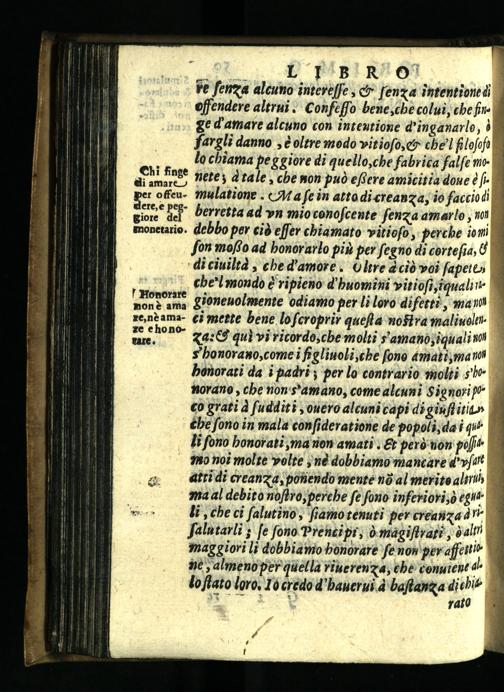 LIBRO
re senza alcuno interesse, & senza intentione di
offendere altrui. Confesso bene, che colui, che fin-
ge d'amare alcuno con intentione d'inganarlo, ò
fargli danno, è oltre modo vitioso, & che'l filosofo
lo chiama peggiore di quello, che fabrica false mo-
nete; à tale, che non può eßere amicitia doue è si-
mulatione. Ma se in atto di creanza, io faccio di
berretta ad vn mio conoscente senza amarlo, non
debbo per ciò esser chiamato vitioso, perche io mi
son moßo ad honorarlo più per segno di cortesia, &
di ciuiltà, che d'amore. Oltre à ciò voi sapete,
che'l mondo è ripieno d'huomini vitiosi, i quali ra-
gioneuolmente odiamo per li loro difetti, ma non
ci mette bene lo scroprir questa nostra maliuolen-
za: & quì vi ricordo, che molti s'amano, i quali non
s'honorano, come i figliuoli, che sono amati, ma non
honorati da i padri; per lo contrario molti s'ho-
norano, che non s'amano, come alcuni Signori po-
co grati à sudditi, ouero alcuni capi di giustitia,
che sono in mala consideratione de popoli, da i qua-
li sono honorati, ma non amati. Et però non possia-
mo noi molte volte, nè dobbiamo mancare d'vsare
atti di creanza, ponendo mente nõ al merito altrui,
ma al debito nostro, perche se sono inferiori, ò egua-
li, che ci salutino, siamo tenuti per creanza à ri-
salutarli; se sono Prencipi, ò magistrati, ò altri
maggiori li dobbiamo honorare se non per affettio-
ne, almeno per quella riuerenza, che conuiene al-
lo stato loro. Io credo d'hauerui à bastanza dichia-
rato
Chi finge
di amare
per offen-
dere, e peg-
giore del
monetario.
Honorare
non è ama
re, nè ama-
re e hono-
rare.